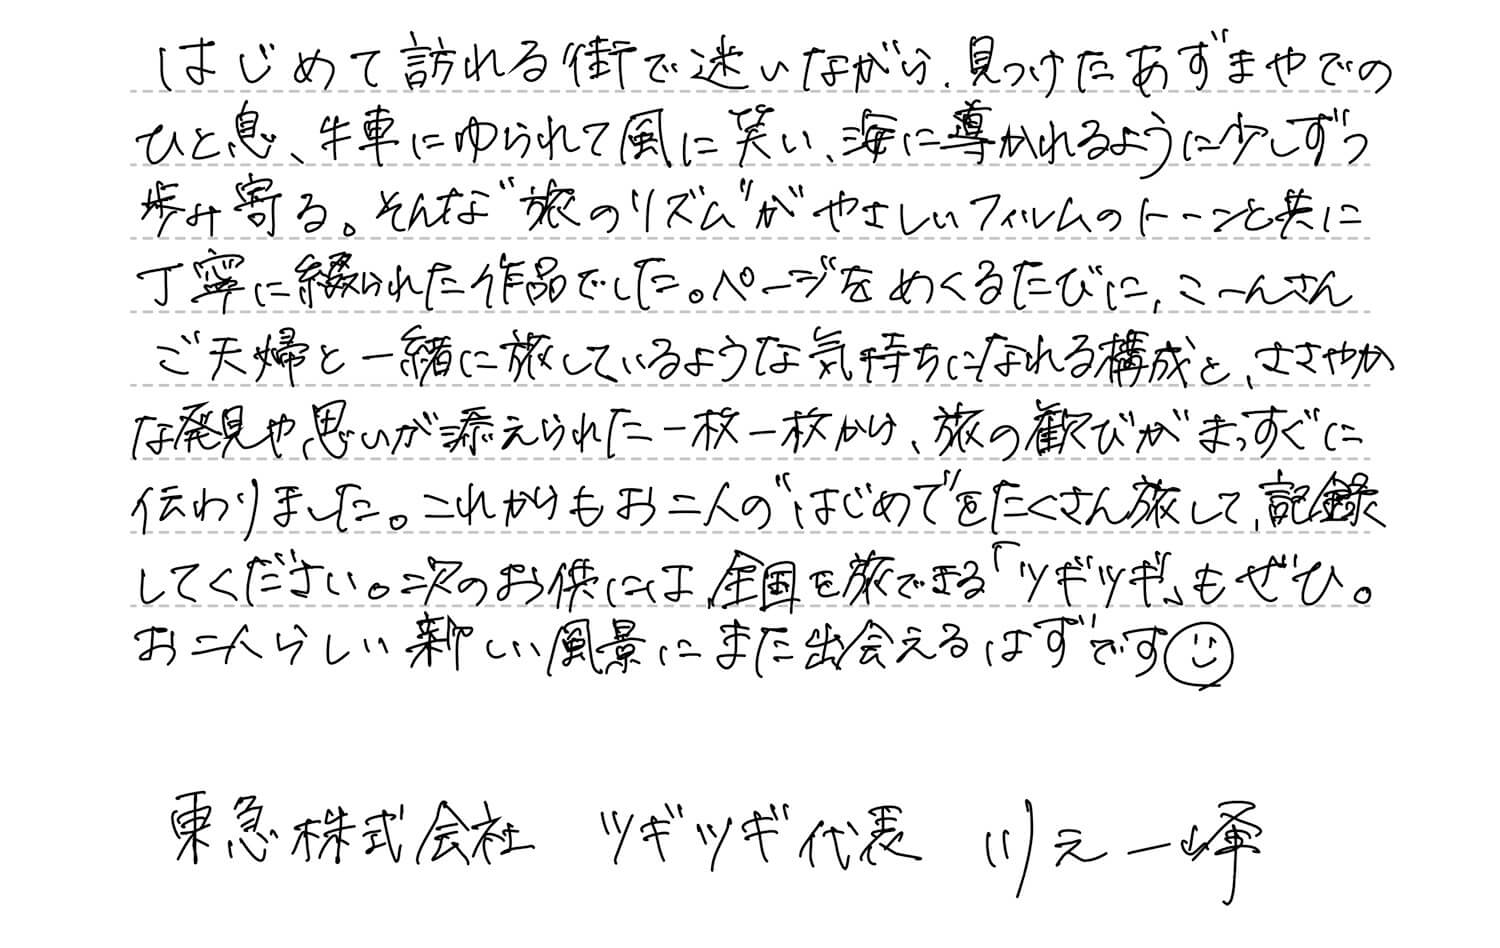 はじめて訪れる街で迷いながら、見つけたあずまやでの
ひと息、牛車にゆられて風に笑い、海に導かれるように少しずつ
歩み寄る。そんな“旅のリズム”がやさしいフィルムのトーンと共に
丁寧に綴られた作品でした。ページをめくるたびに、こーんさん
ご夫婦と一緒に旅しているような気持ちになれる構成と、ささやか
な発見や思いが添えられた一枚一枚から、旅の歓びがまっすぐに
伝わりました。これからもお二人の“はじめて”をたくさん旅して、記録
してください。次のお供には、全国を旅できる「ツギツギ」もぜひ。
お二人らしい新しい風景にまた出会えるはずです☺
東急株式会社 ツギツギ代表 川元一峰